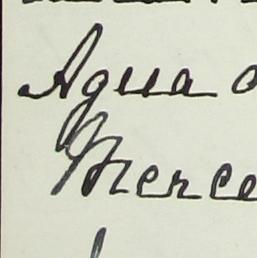 Agua
Merce